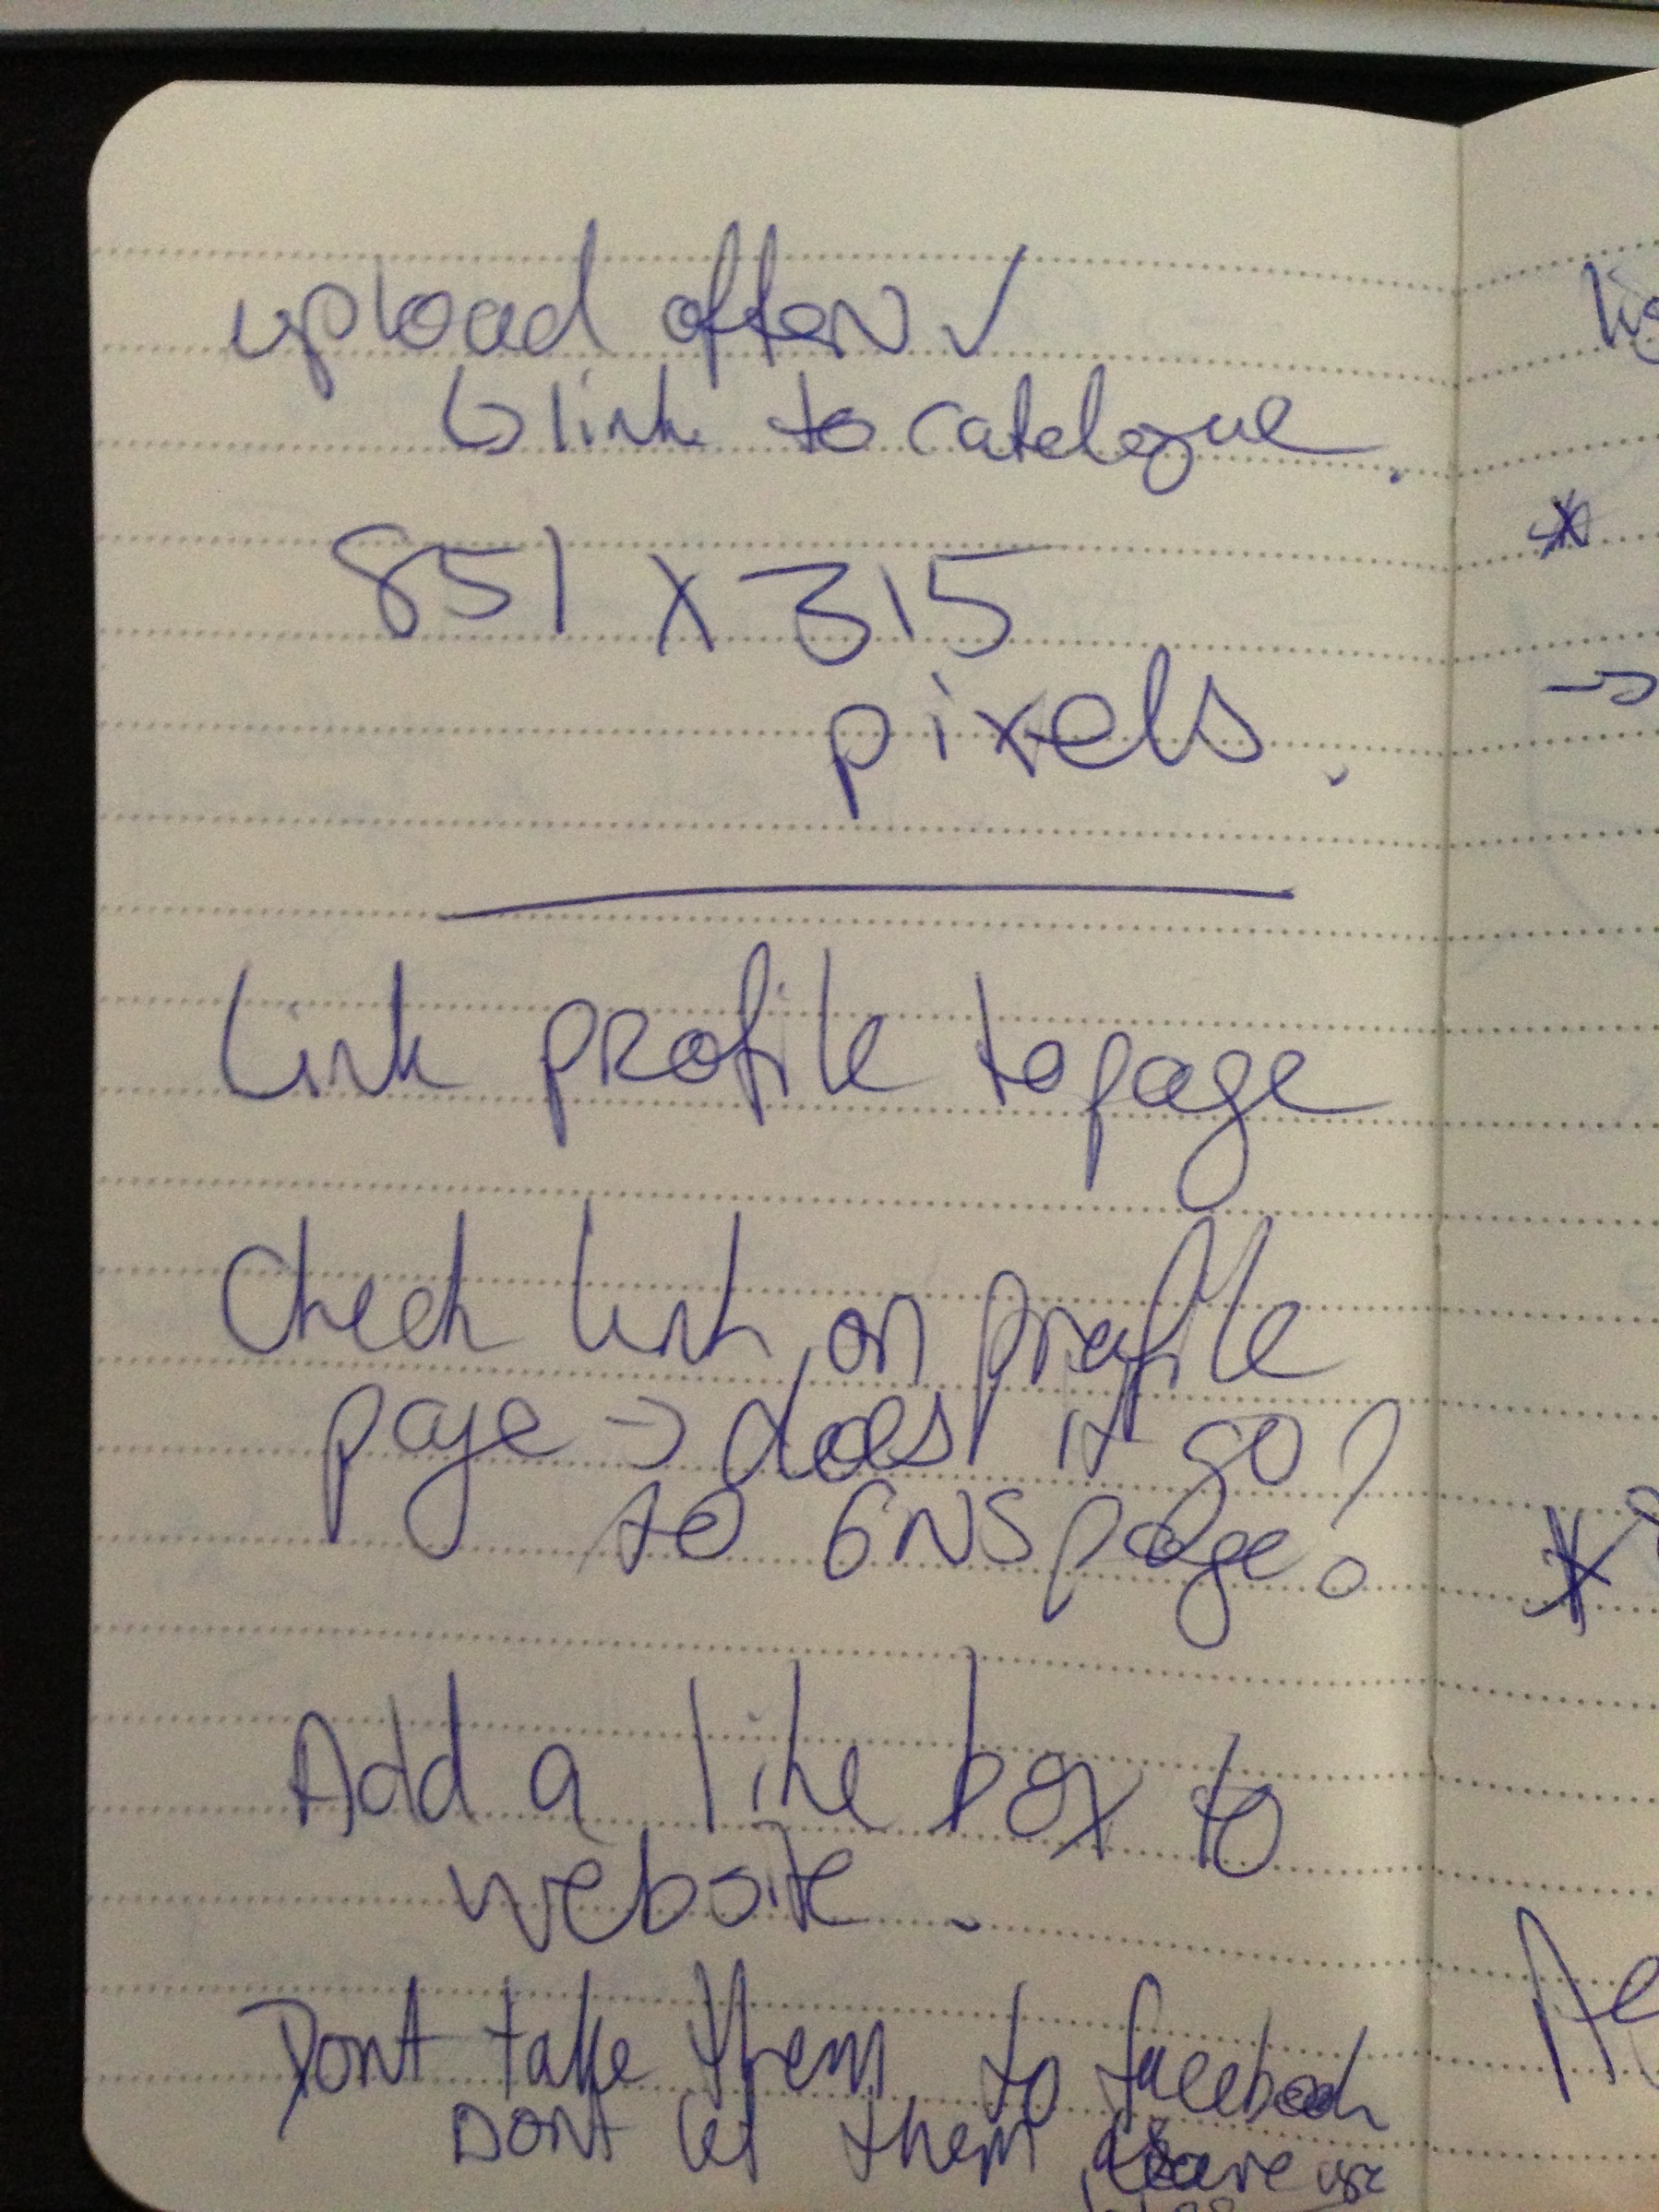 upload often ✓
↳ link to catelogue.
851 x 315
pixels.
Link profile to page
Check link on profile
page → does it go
to GNS page?
Add a like box to
website.
Dont take them to facebook
Dont let them leave